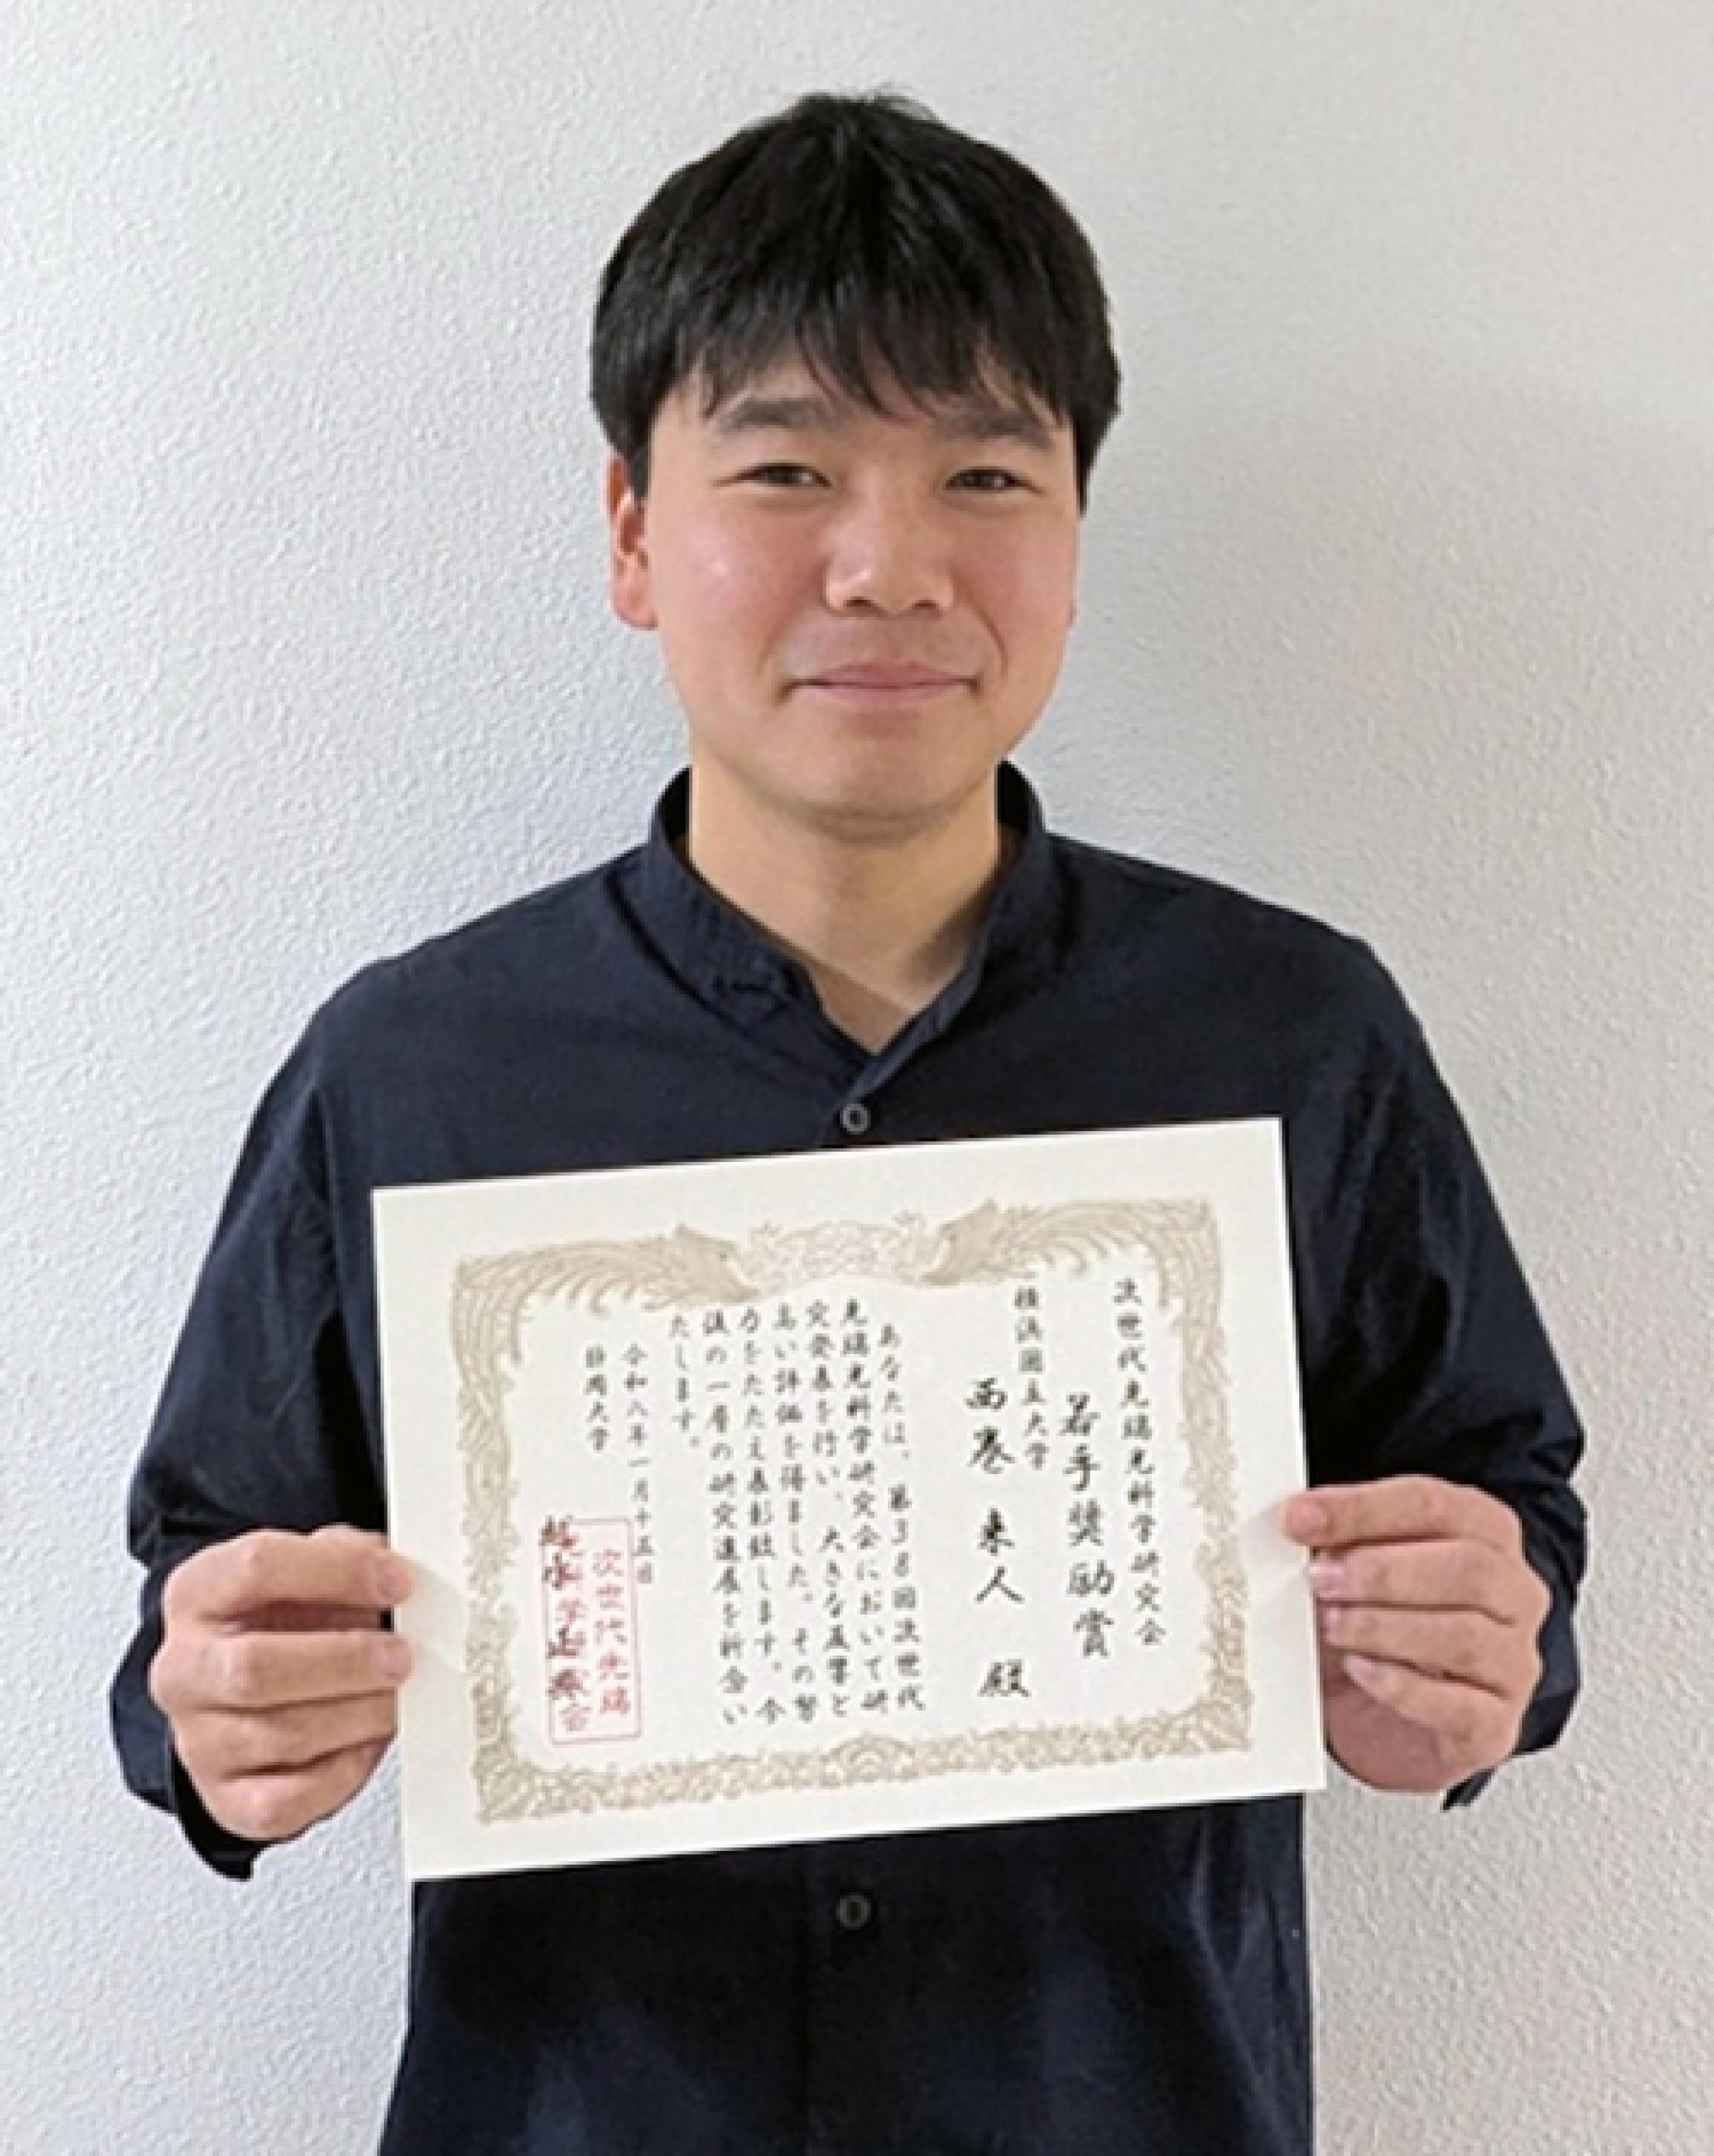 次世代先端光科学研究会
若手奨励賞
横浜国立大学
西巻 来人 殿
あなたは、第38回次世代
先端光科学研究会において研
究発表を行い、大きな反響と
高い評価を得ました。その努
力をたたえ表彰致します。今
後の一層の研究進展を祈念い
たします。
令和八年一月十五日
静岡大学
次世代先端